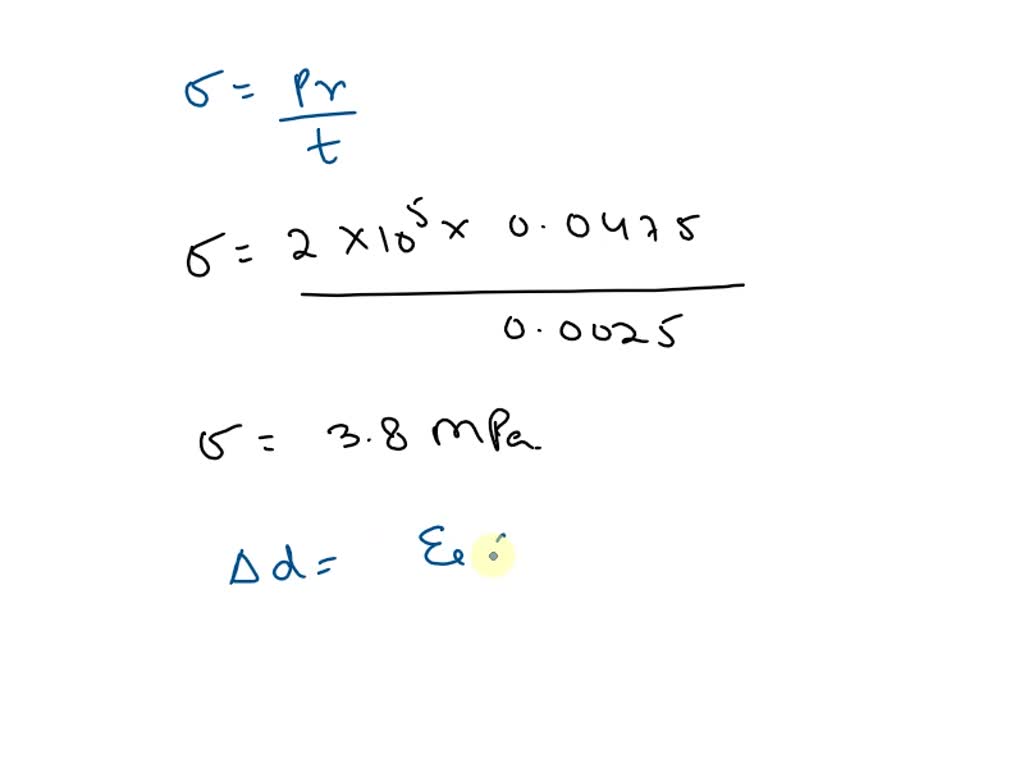 σ = Pr / t
σ = 2 × 10⁵ × 0.0475 / 0.0025
σ = 3.8 mPa.
Δd = Ee